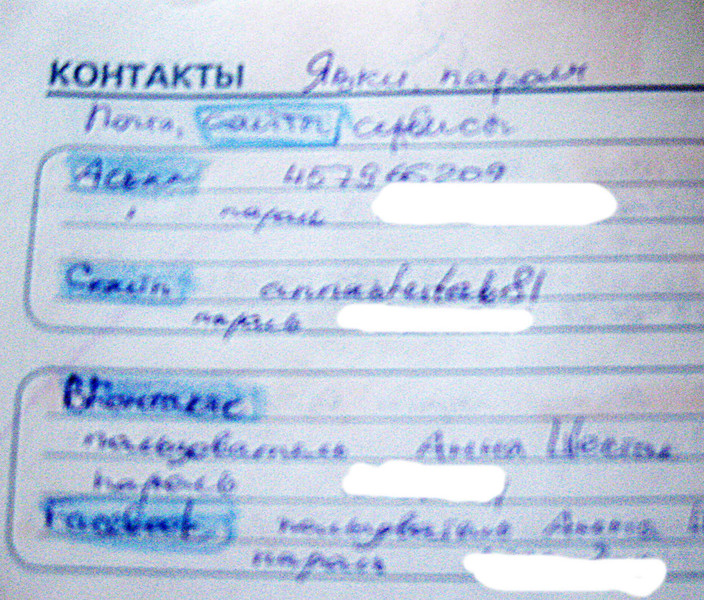 КОНТАКТЫ Явки, пароли
Почта, сайты, сервисы
Аська 457966209
пароль
Скайп
пароль
ВКонтакте
пользователь Анна Шестак
пароль
Facebook пользователь Анна
пароль